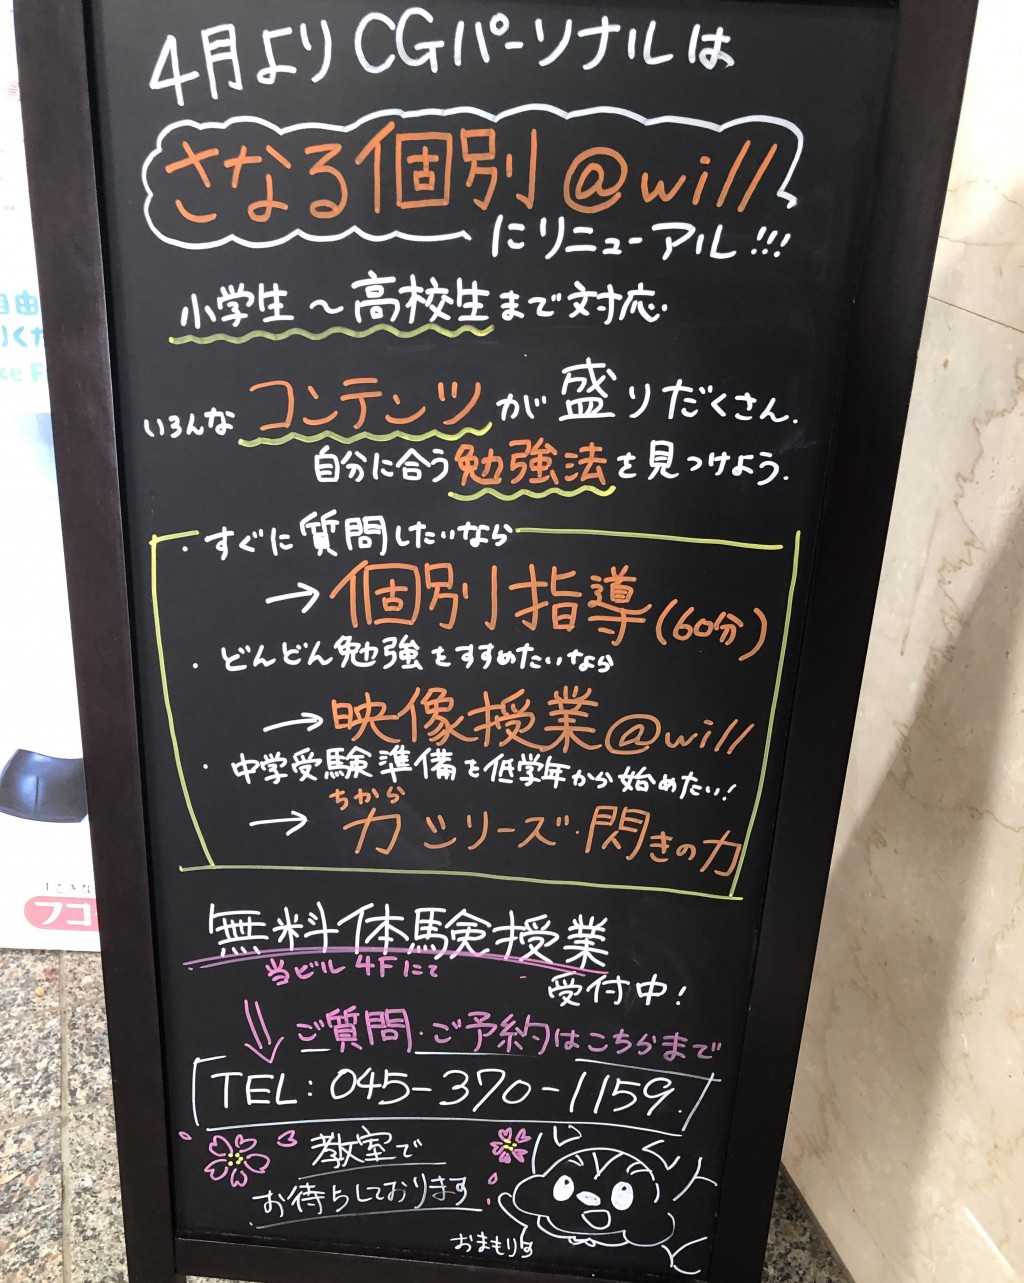 4月よりCGパーソナルは
さなる個別@will
にリニューアル!!!
小学生〜高校生まで対応.
いろんなコンテンツが盛りだくさん.
自分に合う勉強法を見つけよう.
・すぐに質問したいなら
→個別指導(60分)
・どんどん勉強をすすめたいなら
→映像授業@will
・中学受験準備を低学年から始めたい!
ちから
→力シリーズ・閃きの力
無料体験授業
当ビル4Fにて
受付中!
ご質問・ご予約はこちらまで
TEL:045-370-1159.
教室で
お待ちしております
おまもりす
自由